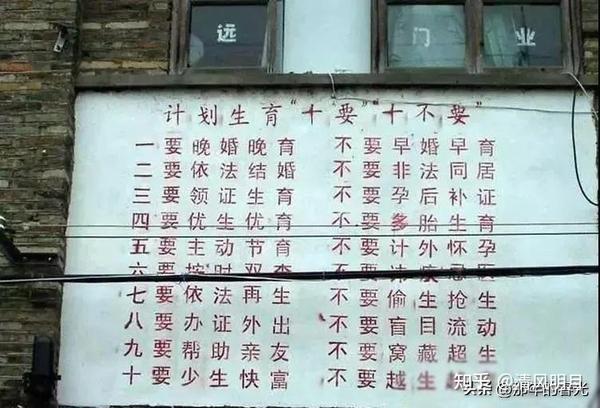 远 门 业
计划生育“十要”“十不要”
一要晚婚晚育 不要早婚早育
二要依法结婚 不要非法同居
三要领证生育 不要孕后补证
四要优生优育 不要多胎生育
五要主动节育 不要计外怀孕
六要按时双查 不要讳疾忌医
七要依法再生 不要偷生抢生
八要办证外出 不要盲目流动
九要帮助亲友 不要窝藏超生
十要少生快富 不要越生
知乎 @清风明月
头条 @那年的春光